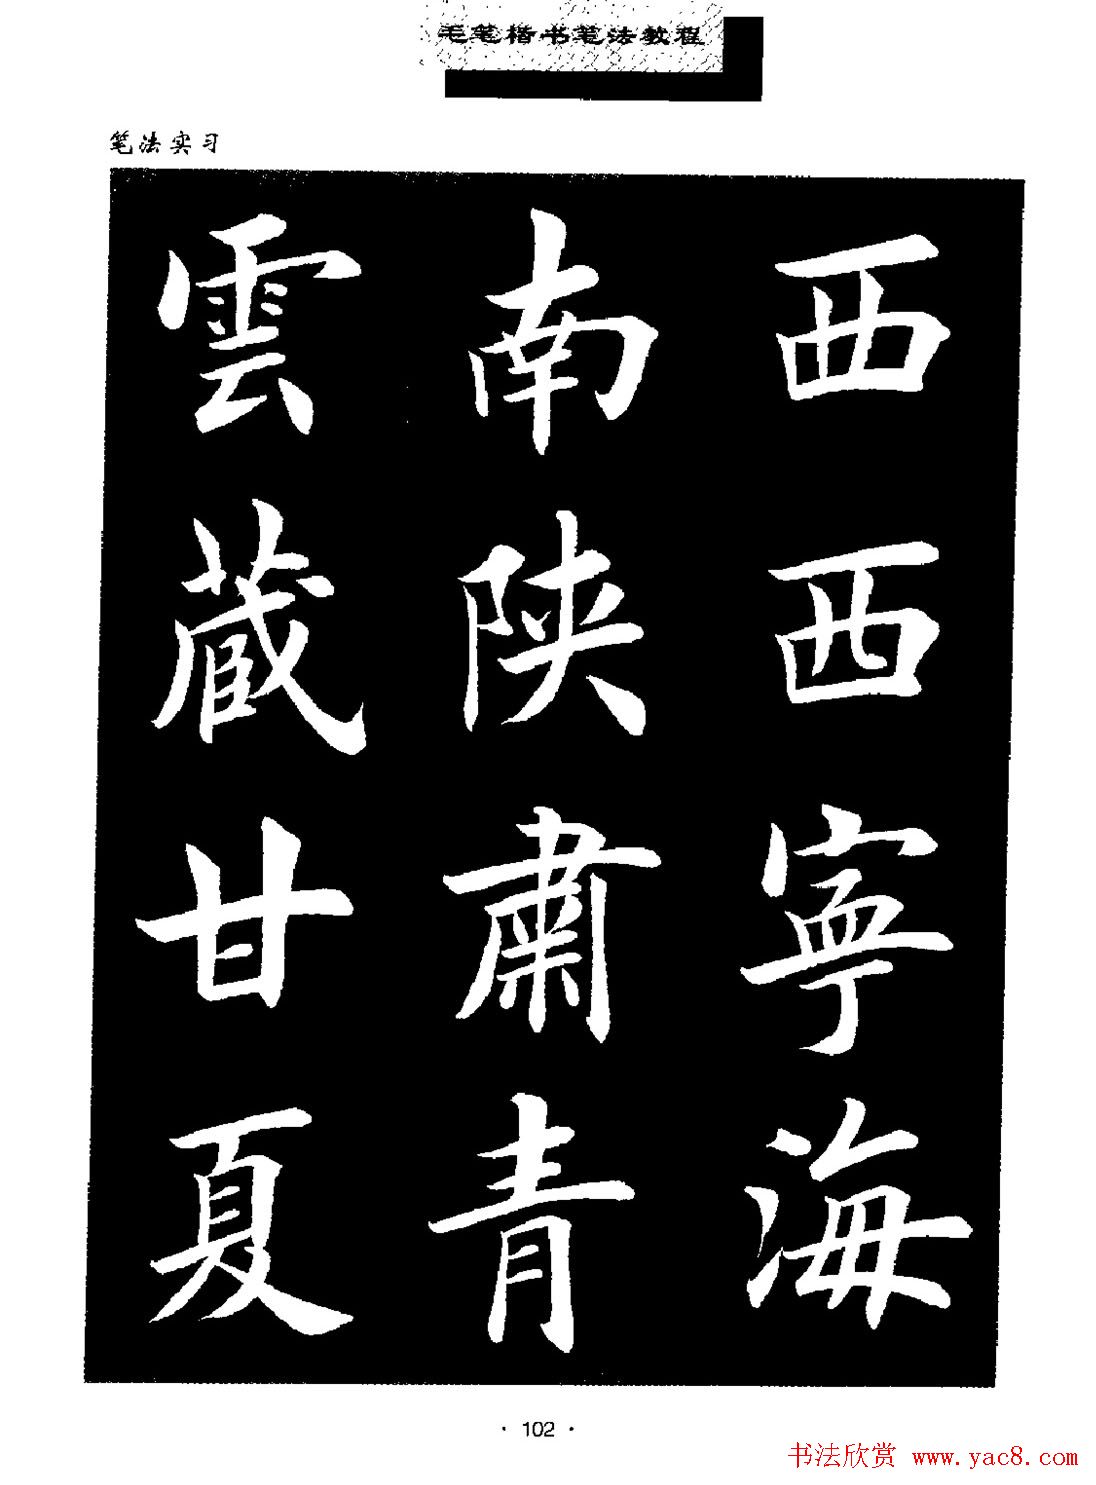 毛笔楷书笔法教程
笔法实习
雲南西
藏陕西
甘肅寧
夏青海
· 102 ·
书法欣赏 www.yac8.com